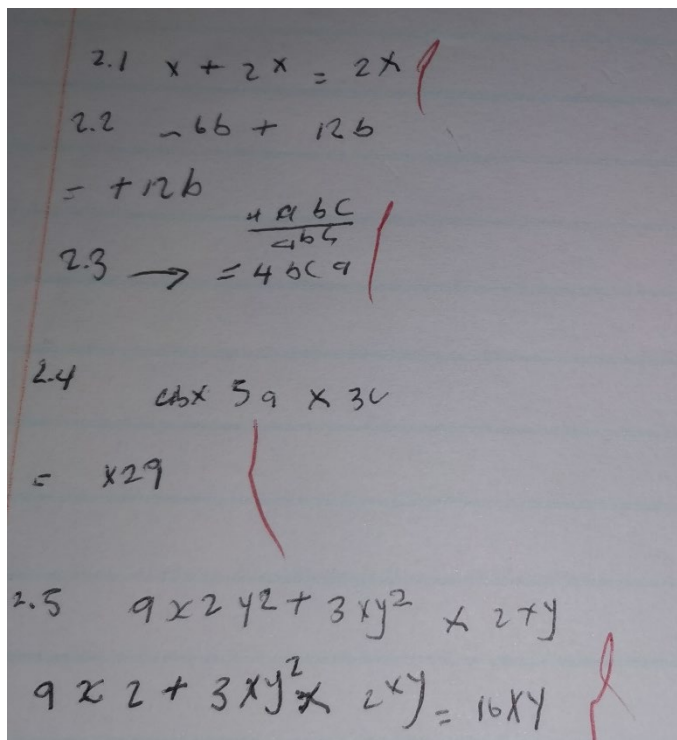 2.1 x + 2x = 2x
2.2 - 6b + 12b
= + 12b
4 a bc
abc
2.3 → = 4 bc a
2.4 abx 5a x 3c
= x29
2.5 9x2y2 + 3xy² x 2xy
9x2 + 3xy² x 2xy = 16xy